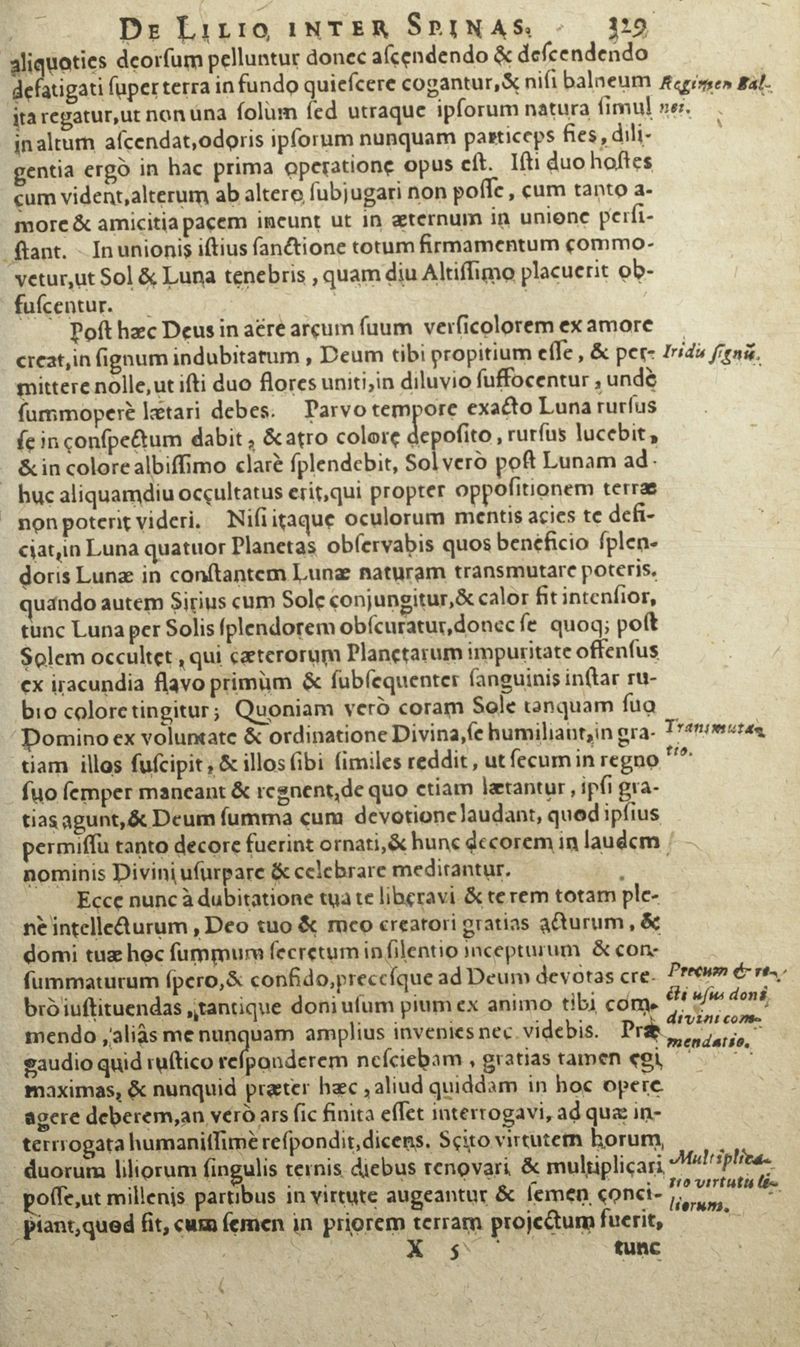 DE LILIO INTER SPINAS. 329
aliquoties deorsum pelluntur donec ascendendo & descendendo
defatigati super terra in fundo quiescere cogantur, & nisi balneum Regimen Bal-
ita regatur, ut non una solùm sed utraque ipsorum natura simul nei.
in altum ascendat, odoris ipsorum nunquam particeps fies, dili-
gentia ergò in hac prima operatione opus est. Isti duo hostes
cum vident, alterum ab altero subjugari non posse, cum tanto a-
more & amicitia pacem ineunt ut in æternum in unione persi-
stant. In unionis istius sanctione totum firmamentum commo-
vetur, ut Sol & Luna tenebris, quam diu Altissimo placuerit ob-
fuscentur.
Post hæc Deus in aëre arcum suum versicolorem ex amore
creat, in signum indubitatum, Deum tibi propitium esse, & per- Iridis signũ.
mittere nolle, ut isti duo flores uniti, in diluvio suffocentur, undè
summopere lætari debes. Parvo tempore exacto Luna rursus
se in conspectum dabit, & atro colore deposito, rursus lucebit,
& in colore albissimo clarè splendebit, Sol verò post Lunam ad-
huc aliquamdiu occultatus erit, qui propter oppositionem terræ
non poterit videri. Nisi itaque oculorum mentis acies te defi-
ciat, in Luna quatuor Planetas observabis quos beneficio splen-
doris Lunæ in constantem Lunæ naturam transmutare poteris.
quando autem Sirius cum Sole conjungitur, & calor fit intensior,
tunc Luna per Solis splendorem obscuratur, donec se quoq; post
Solem occultet, qui cæterorum Planetarum impuritate offensus
ex iracundia flavo primùm & subsequenter sanguinis instar ru-
bio colore tingitur; Quoniam verò coram Sole tanquam suo
Domino ex voluntate & ordinatione Divina, se humiliant, in gra- Transmuta-
tiam illos suscipit, & illos sibi similes reddit, ut secum in regno tio.
suo semper maneant & regnent, de quo etiam lætantur, ipsi gra-
tias agunt, & Deum summa cum devotione laudant, quod ipsius
permissu tanto decore fuerint ornati, & hunc decorem in laudem
nominis Divini usurpare & celebrare meditantur.
Ecce nunc à dubitatione tua te liberavi & te rem totam ple-
nè intellecturum, Deo tuo & meo creatori gratias acturum, &
domi tuæ hoc summum secretum in silentio incepturum & con-
summaturum spero, & confido, precesque ad Deum devotas cre- Precum & re-
brò iustituendas, tantique doni usum pium ex animo tibi com- cti usus doni
mendo, aliàs me nunquam amplius invenies nec videbis. Præ divini com-
gaudio quid rustico responderem nesciebam, gratias tamen egi mendatio.
maximas, & nunquid præter hæc, aliud quiddam in hoc opere
agere deberem, an verò ars sic finita esset interrogavi, ad quæ in-
terrrogata humanissimè respondit, dicens. Scito virtutem horum
duorum liliorum singulis ternis diebus renovari & multiplicari Multiplica-
posse, ut millenis partibus in virtute augeantur & semen conci- tio virtutu li-
piant, quod fit, cum semen in priorem terram projectum fuerit, liorum.
X 5 tunc